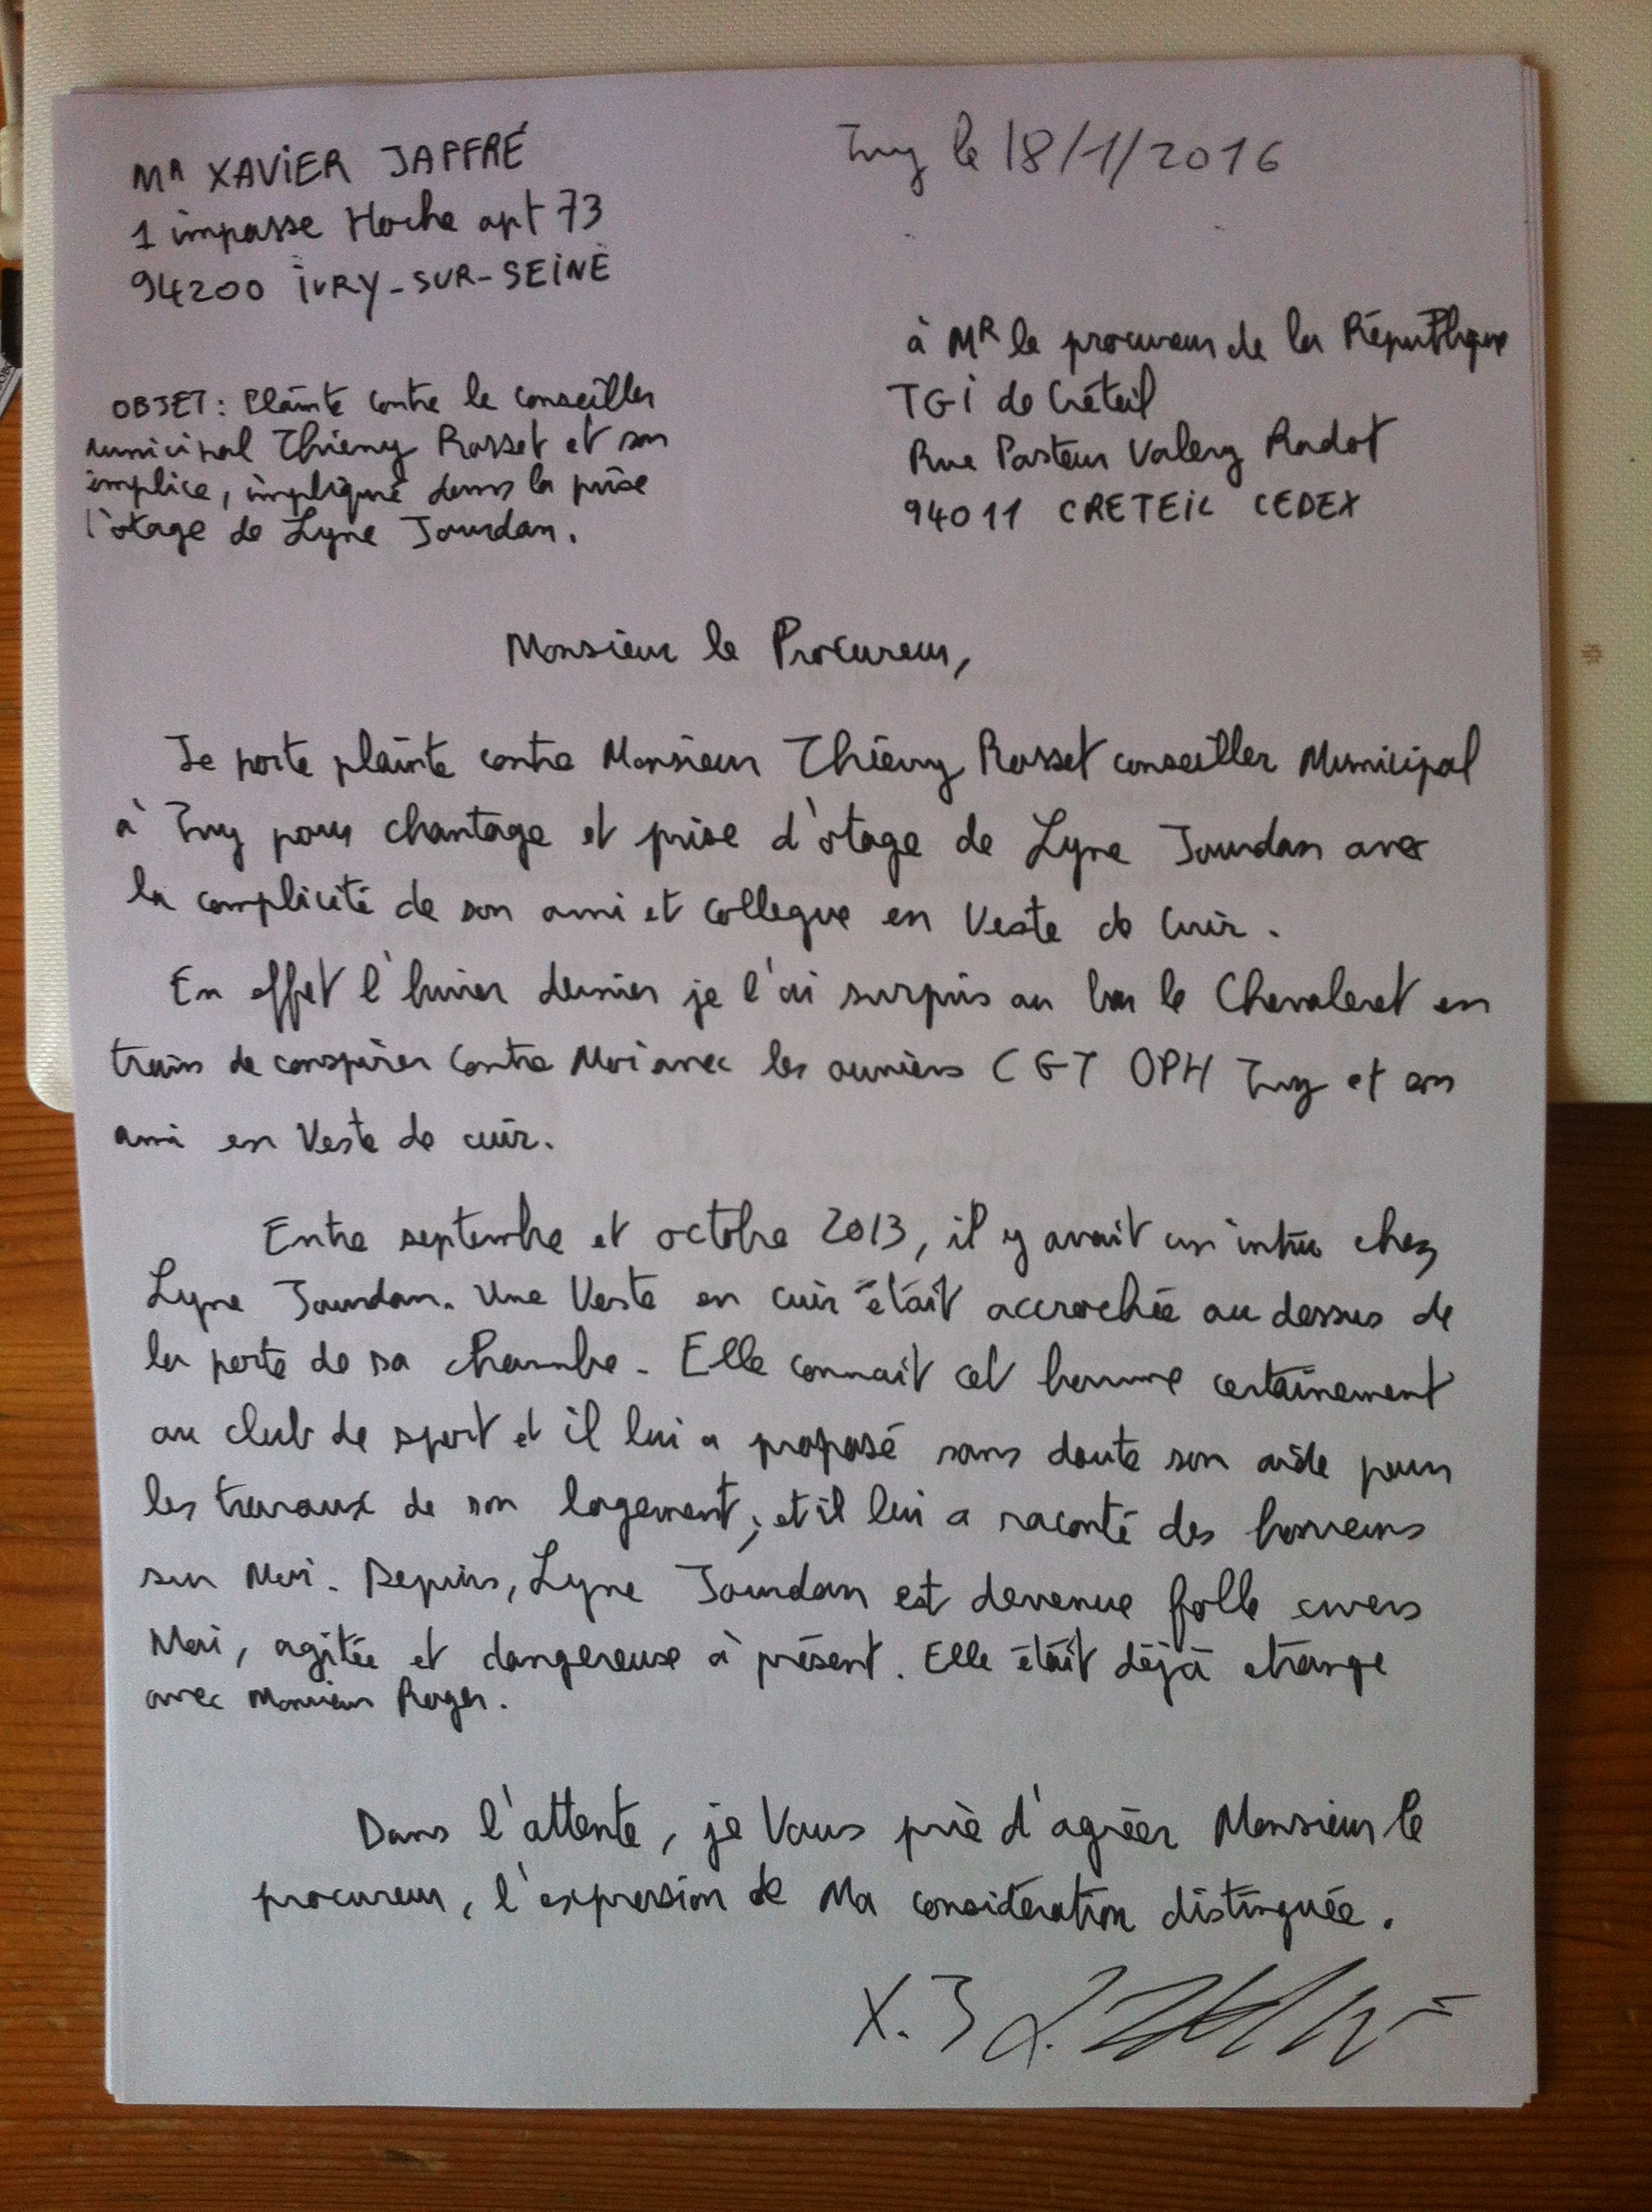 Mr XAVIER JAFFRÉ
1 impasse Hoche apt 73
94200 IVRY-SUR-SEINE
Ivry le 18/1/2016
à MR le procureur de la République
TGI de Créteil
Rue Pasteur Valery Radot
94011 CRETEIL CEDEX
OBJET: Plainte contre le conseiller
municipal Thierry Rosset et son
complice, impliqué dans la prise
d'otage de Lyne Jourdan.
Monsieur le Procureur,
Je porte plainte contre Monsieur Thierry Rosset conseiller Municipal
à Ivry pour chantage et prise d'otage de Lyne Jourdan avec
la complicité de son ami et collegue en Veste de Cuir.
En effet l'hiver dernier je l'ai surpris au bar le Chevaleret en
train de conspirer contre Moi avec les ouvriers CGT OPH Ivry et son
ami en Veste de cuir.
Entre septembre et octobre 2013, il y avait un intrus chez
Lyne Jourdan. Une Veste en cuir était accrochée au dessus de
la porte de sa chambre. Elle connait cet homme certainement
au club de sport et il lui a proposé sans doute son aide pour
les travaux de son logement, et il lui a raconté des horreurs
sur Moi. Depuis, Lyne Jourdan est devenue folle envers
Moi, agitée et dangereuse à présent. Elle était déjà étrange
avec Monsieur Roger.
Dans l'attente, je Vous prie d'agréer Monsieur le
procureur, l'expression de Ma considération distinguée.
X. J